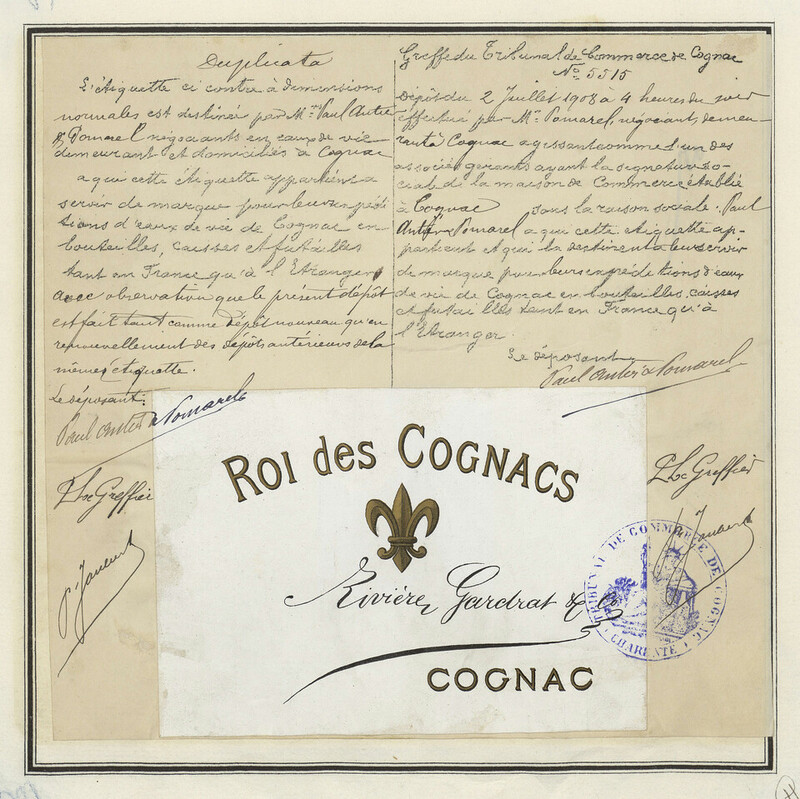 Duplicata
L'étiquette ci contre à dimensions
normales est destinée par Mrs Paul Antier
& Pomarel négociants en eaux de vie
demeurant et domiciliés à Cognac
a qui cette étiquette appartient a
servir de marque pour leurs expédi
tions d'eaux de vie de Cognac en
bouteilles, caisses et futailles
tant en France qu'à l'Etranger
avec observation que le présent dépôt
est fait tant comme dépôt nouveau qu'en
renouvellement des dépôts antérieurs de la
même étiquette.
Le déposant:
Paul Antier & Pomarel
Greffe du Tribunal de Commerce de Cognac
No 5515
Dépôt du 2 Juillet 1908 à 4 heures du soir
effectué par Mr Pomarel, négociant, demeu-
rant à Cognac agissant comme l'un des
associés gérants ayant la signature so-
ciale de la maison de Commerce établie
à Cognac sous la raison sociale. Paul
Antier & Pomarel a qui cette étiquette ap-
partient et qui la destinent a leur servir
de marque pour leurs expéditions d'eaux
de vie de Cognac en bouteilles, caisses
et futailles tant en France qu'à
l'Etranger.
Le déposant
Paul Antier & Pomarel
P. Le Greffier
P. Le Greffier
ROI des COGNACS
Rivière, Gardrat & Co
COGNAC
TRIBUNAL DE COMMERCE DE COGNAC
CHARENTE